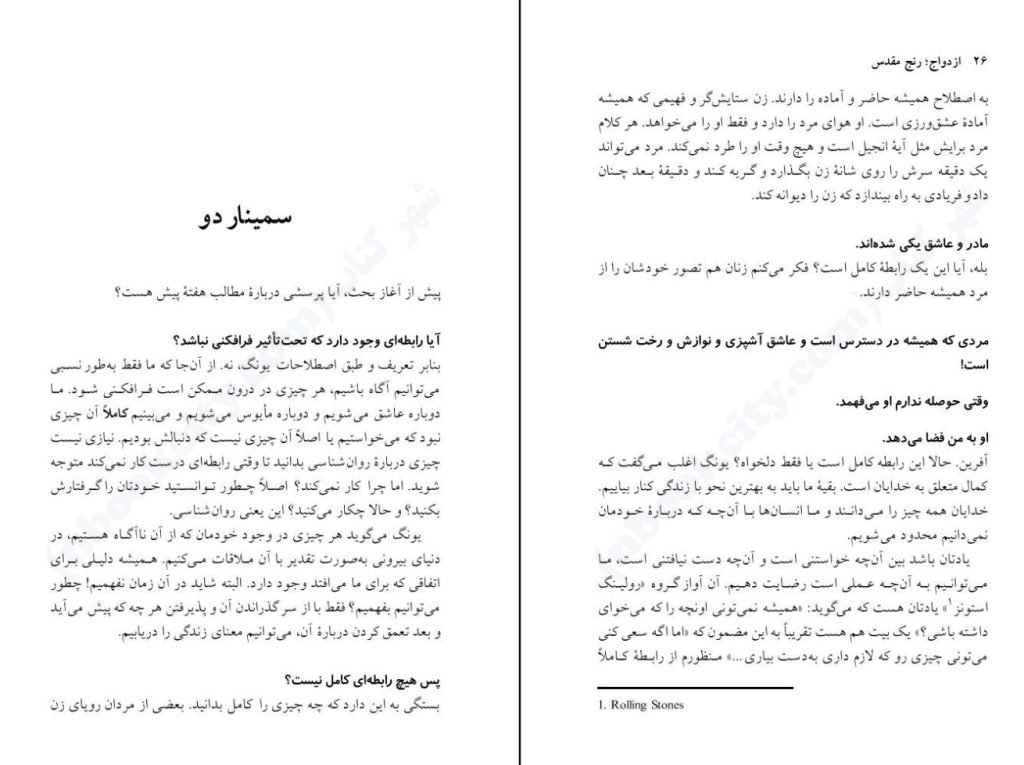 سمینار دو
پیش از آغاز بحث، آیا پرسشی دربارهٔ مطالب هفتهٔ پیش هست؟
آیا رابطه‌ای وجود دارد که تحت‌تأثیر فرافکنی نباشد؟
بنابر تعریف و طبق اصطلاحات یونگ، نه. از آن‌جا که ما فقط به‌طور نسبی
می‌توانیم آگاه باشیم، هر چیزی در درون ممکن است فرافکنی شود. ما
دوباره عاشق می‌شویم و دوباره مأیوس می‌شویم و می‌بینیم کاملاً آن چیزی
نبود که می‌خواستیم یا اصلاً آن چیزی نیست که دنبالش بودیم. نیازی نیست
چیزی دربارهٔ روان‌شناسی بدانید تا وقتی رابطه‌ای درست کار نمی‌کند متوجه
شوید. اما چرا کار نمی‌کند؟ اصلاً چطور توانستید خودتان را گرفتارش
بکنید؟ و حالا چکار می‌کنید؟ این یعنی روان‌شناسی.
یونگ می‌گوید هر چیزی در وجود خودمان که از آن ناآگاه هستیم، در
دنیای بیرونی به‌صورت تقدیر با آن ملاقات می‌کنیم. همیشه دلیلی برای
اتفاقی که برای ما می‌افتد وجود دارد. البته شاید در آن زمان نفهمیم! چطور
می‌توانیم بفهمیم؟ فقط با از سر گذراندن آن و پذیرفتن هر چه که پیش می‌آید
و بعد تعمق کردن دربارهٔ آن، می‌توانیم معنای زندگی را دریابیم.
پس هیچ رابطه‌ای کامل نیست؟
بستگی به این دارد که چه چیزی را کامل بدانید. بعضی از مردان رویای زن
۲۶ ازدواج؛ رنج مقدس
به اصطلاح همیشه حاضر و آماده را دارند. زن ستایش‌گر و فهیمی که همیشه
آمادهٔ عشق‌ورزی است. او هوای مرد را دارد و فقط او را می‌خواهد. هر کلام
مرد برایش مثل آیهٔ انجیل است و هیچ وقت او را طرد نمی‌کند. مرد می‌تواند
یک دقیقه سرش را روی شانهٔ زن بگذارد و گریه کند و دقیقهٔ بعد چنان
دادو فریادی به راه بیندازد که زن را دیوانه کند.
مادر و عاشق یکی شده‌اند.
بله، آیا این یک رابطهٔ کامل است؟ فکر می‌کنم زنان هم تصور خودشان را از
مرد همیشه حاضر دارند.
مردی که همیشه در دسترس است و عاشق آشپزی و نوازش و رخت شستن
است!
وقتی حوصله ندارم او می‌فهمد.
او به من فضا می‌دهد.
آفرین. حالا این رابطه کامل است یا فقط دلخواه؟ یونگ اغلب می‌گفت که
کمال متعلق به خدایان است. بقیهٔ ما باید به بهترین نحو با زندگی کنار بیاییم.
خدایان همه چیز را می‌دانند و ما انسان‌ها با آن‌چه که دربارهٔ خودمان
نمی‌دانیم محدود می‌شویم.
یادتان باشد بین آن‌چه خواستنی است و آن‌چه دست نیافتنی است، ما
می‌توانیم به آن‌چه عملی است رضایت دهیم. آن آواز گروه «رولینگ
استونز۱» یادتان هست که می‌گوید: «همیشه نمی‌تونی اونچه را که می‌خوای
داشته باشی؟» یک بیت هم هست تقریباً به این مضمون که «اما اگه سعی کنی
می‌تونی چیزی رو که لازم داری به‌دست بیاری...» منظورم از رابطهٔ کاملاً
1. Rolling Stones